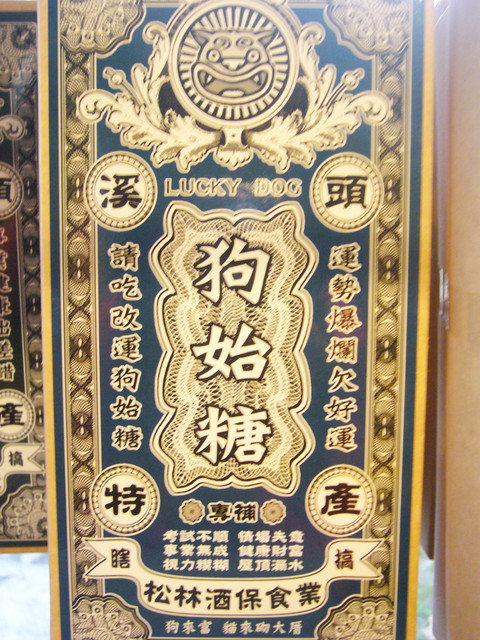 LUCKY DOG
溪頭
運勢爆爛欠好運
狗始糖
請吃改運狗始糖
特產
專補
考試不順 情場失意
事業無成 健康財富
視力模糊 屋頂漏水
瞎搞
松林酒保食業
狗來富 貓來砌大厝
產
搞